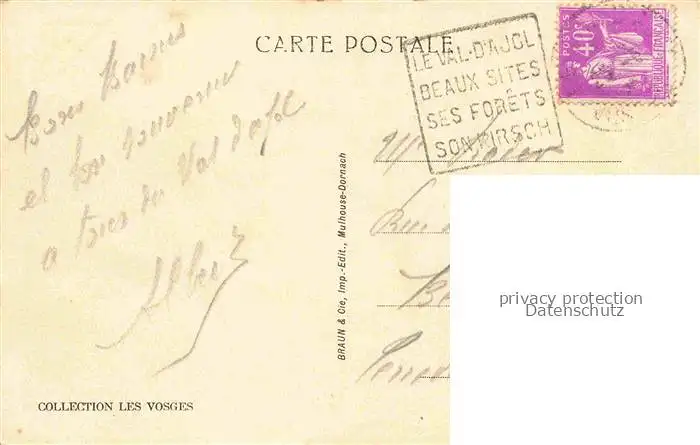 CARTE POSTALE
LE VAL-D'AJOL
BEAUX SITES
SES FORÊTS
SON KIRSCH
POSTES
40c
REPUBLIQUE FRANÇAISE
Bons Baisers
et bon souvenir
a tous du Val d'ajol
BRAUN & Cie, Imp.-Edit., Mulhouse-Dornach
privacy protection
Datenschutz
COLLECTION LES VOSGES